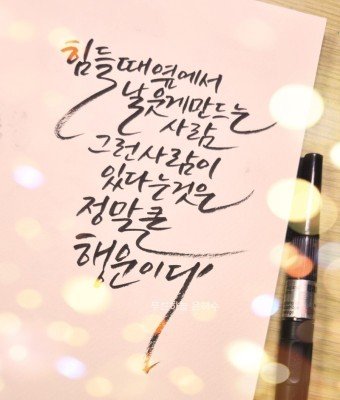 힘들때 옆에서
날 웃게 만드는
사람
그런 사람이
있다는 것은
정말 큰
행운이다